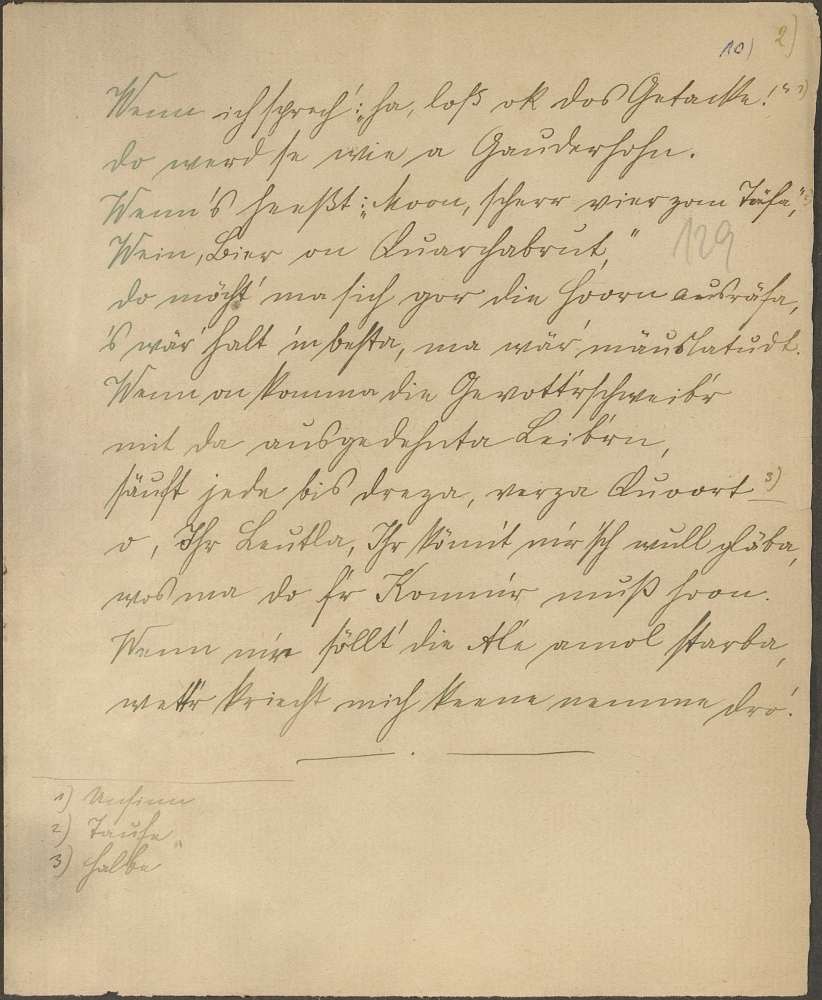 10) 2)
Wenn ich sprech': „ha, loß ok dos Getacke!“ 1)
do werd se wie a Gauderhohn.
Wenn's heeßt: „Moon, scherr vier zom Täfa, 2)
Wein, Bier on Quarchabrut,“
129
do möcht' ma sich gor die Hoorn ausräfa,
's wär' halt 'm besta, ma wär' mäuslatudt.
Wenn on komma die Gevottrschweib'r
mit da ausgedehnta Leib'rn,
säuft jede bis dreza, verza Quoort 3)
o, Ihr Leutla, Ihr könnt mir'sch wull gläba,
wos ma do fr Kommr muß hoon.
Wenn mir söllt' die Ale amol starba,
wettr kriecht mich keene nemme dro'.
1) Unsinn
2) Taufe
3) halbe